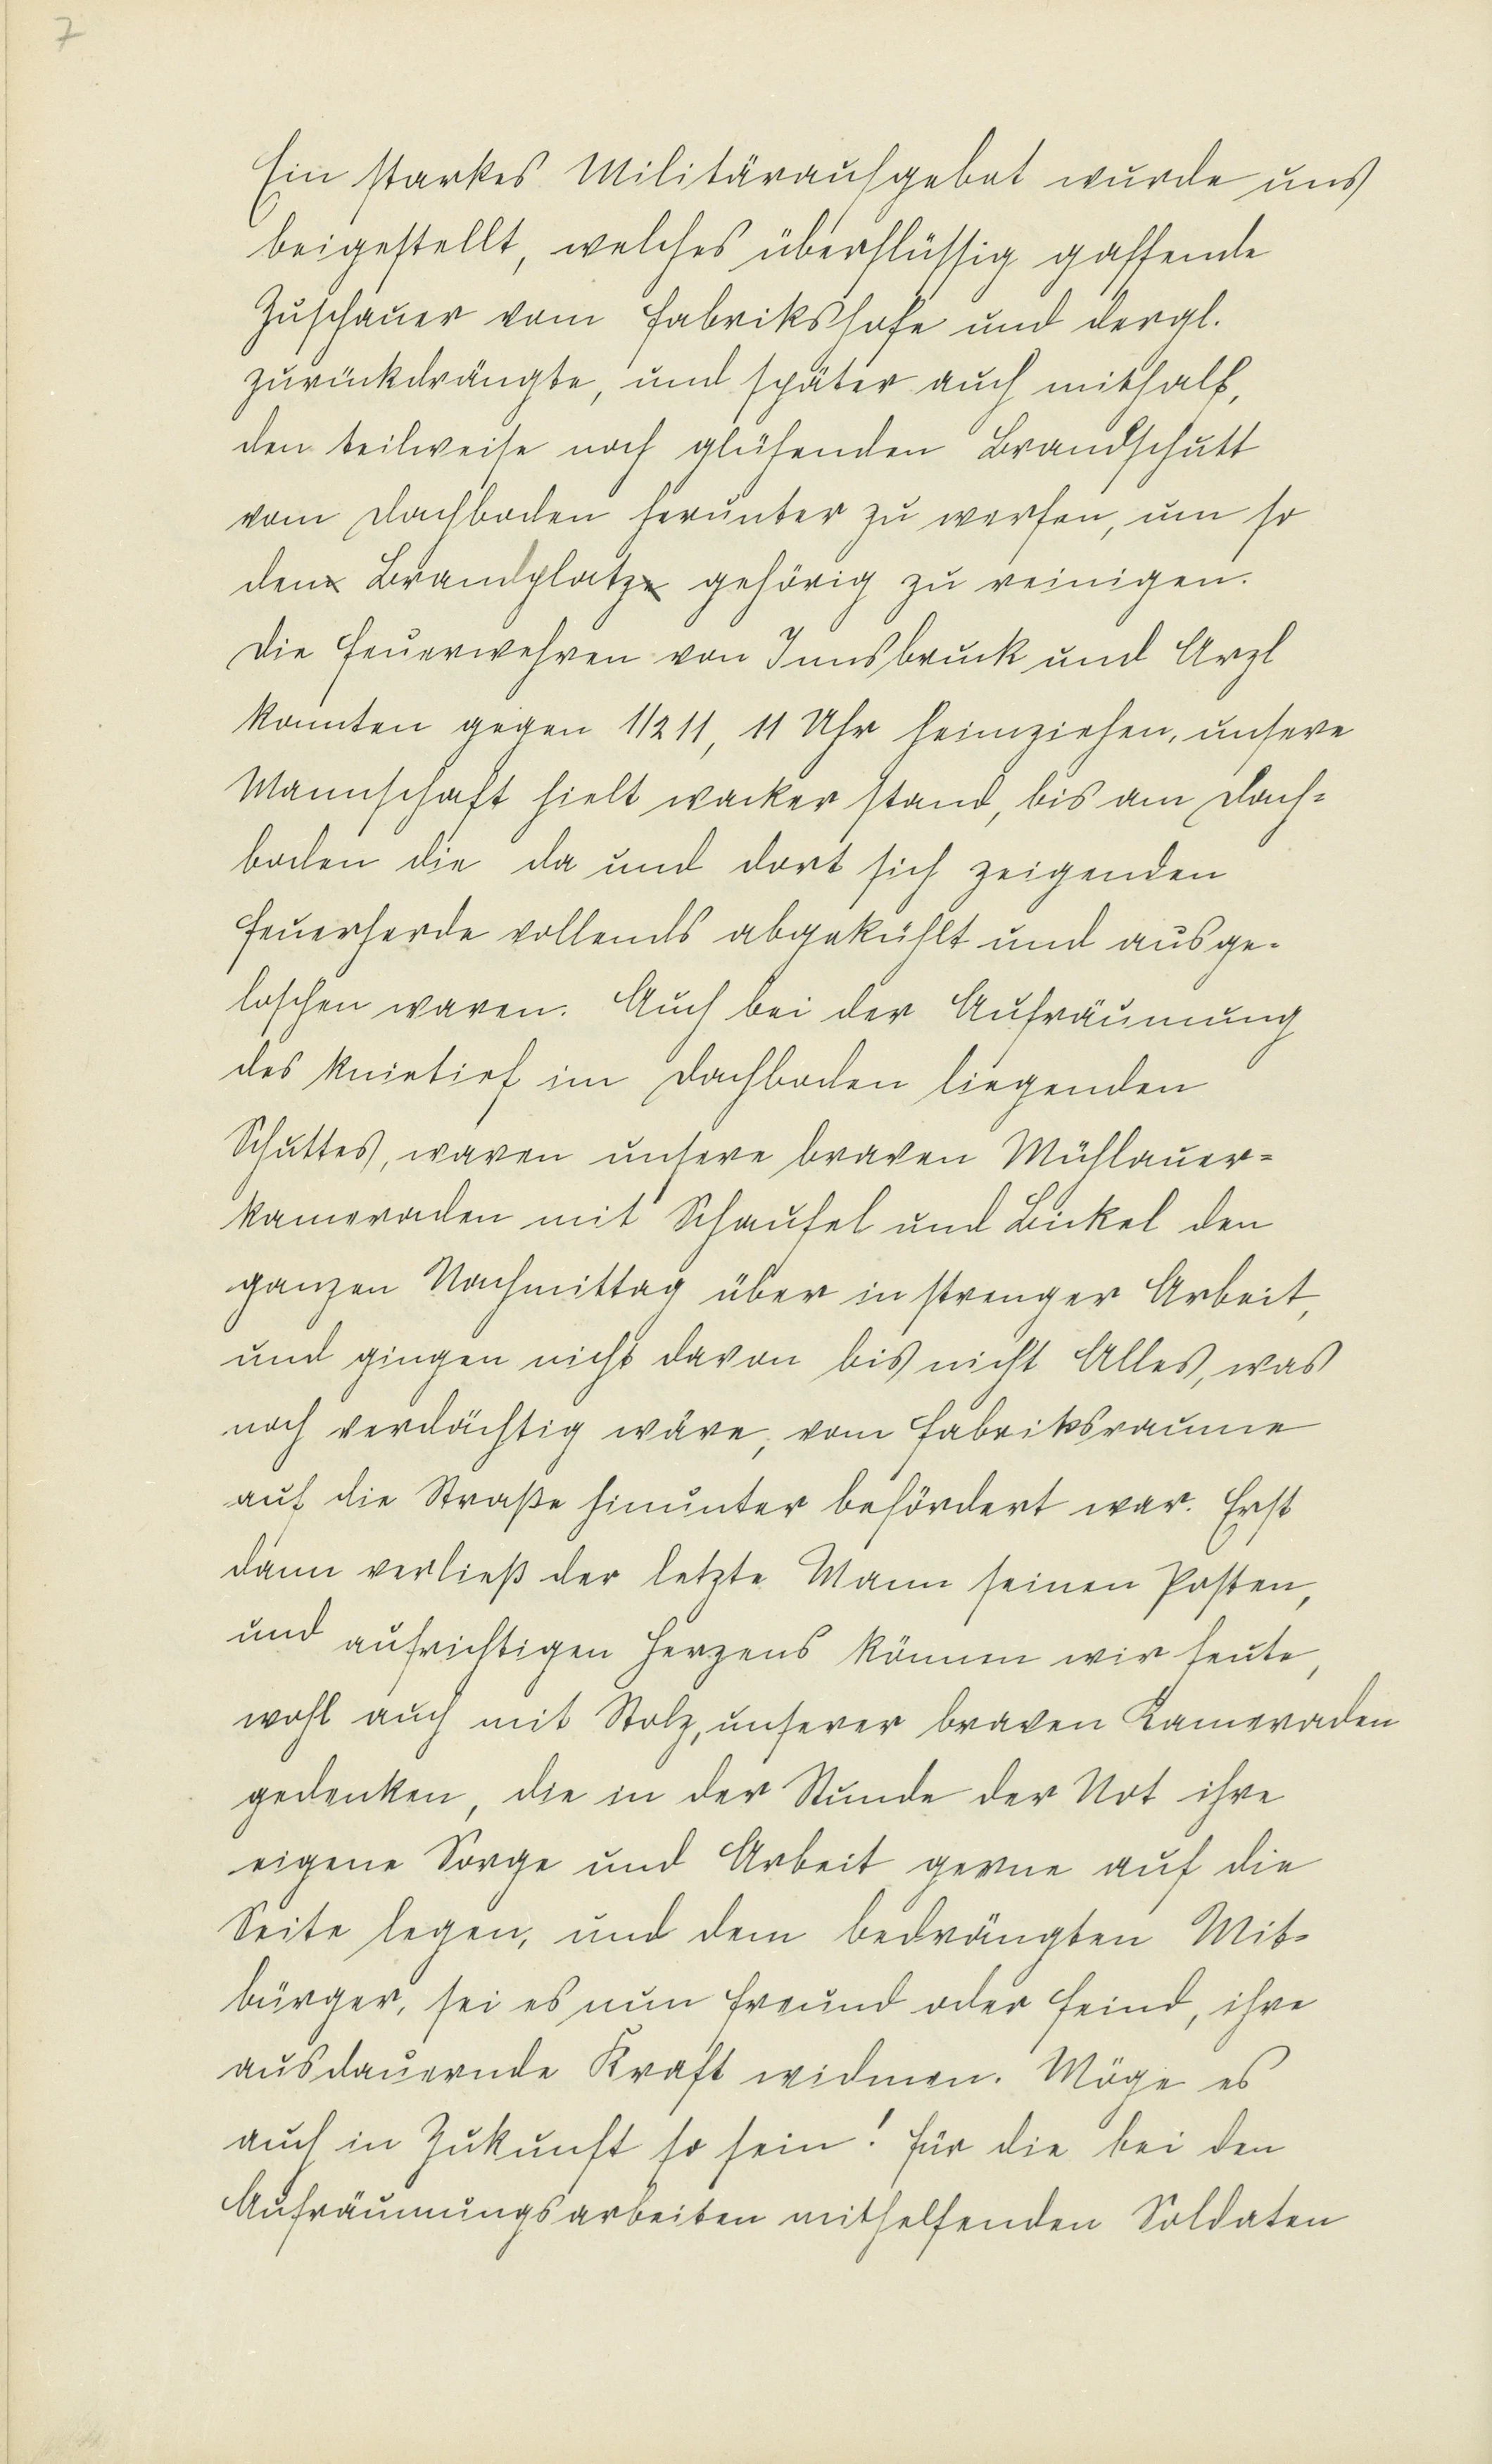 7
Ein starkes Militäraufgebot wurde uns
beigestellt, welches überflüssig gaffende
Zuschauer vom Fabrikshofe und dergl.
zurückdrängte, und später auch mithalf,
den teilweise noch glühenden Brandschutt
vom Dachboden herunter zu werfen, um so
den Brandplatz gehörig zu reinigen.
Die Feuerwehren von Innsbruck und Arzl
konnten gegen 1/2 11, 11 Uhr heimziehen, unsere
Mannschaft hielt wacker stand, bis am Dach-
boden die da und dort sich zeigenden
Feuerherde vollends abgekühlt und ausge-
loschen waren. Auch bei der Aufräumung
des knietief im Dachboden liegenden
Schuttes, waren unsere braven Mühlauer-
kameraden mit Schaufel und Bickel den
ganzen Nachmittag über in strenger Arbeit,
und gingen nicht davon bis nicht Alles, was
noch verdächtig wäre, vom Fabriksraume
auf die Straße hinunter befördert war. Erst
dann verließ der letzte Mann seinen Posten,
und aufrichtigen Herzens können wir heute,
wohl auch mit Stolz, unserer braven Kameraden
gedenken, die in der Stunde der Not ihre
eigene Sorge und Arbeit gerne auf die
Seite legen, und dem bedrängten Mit-
bürger, sei es nun Freund oder Feind, ihre
ausdauernde Kraft widmen. Möge es
auch in Zukunft so sein! Für die bei den
Aufräumungsarbeiten mithelfenden Soldaten